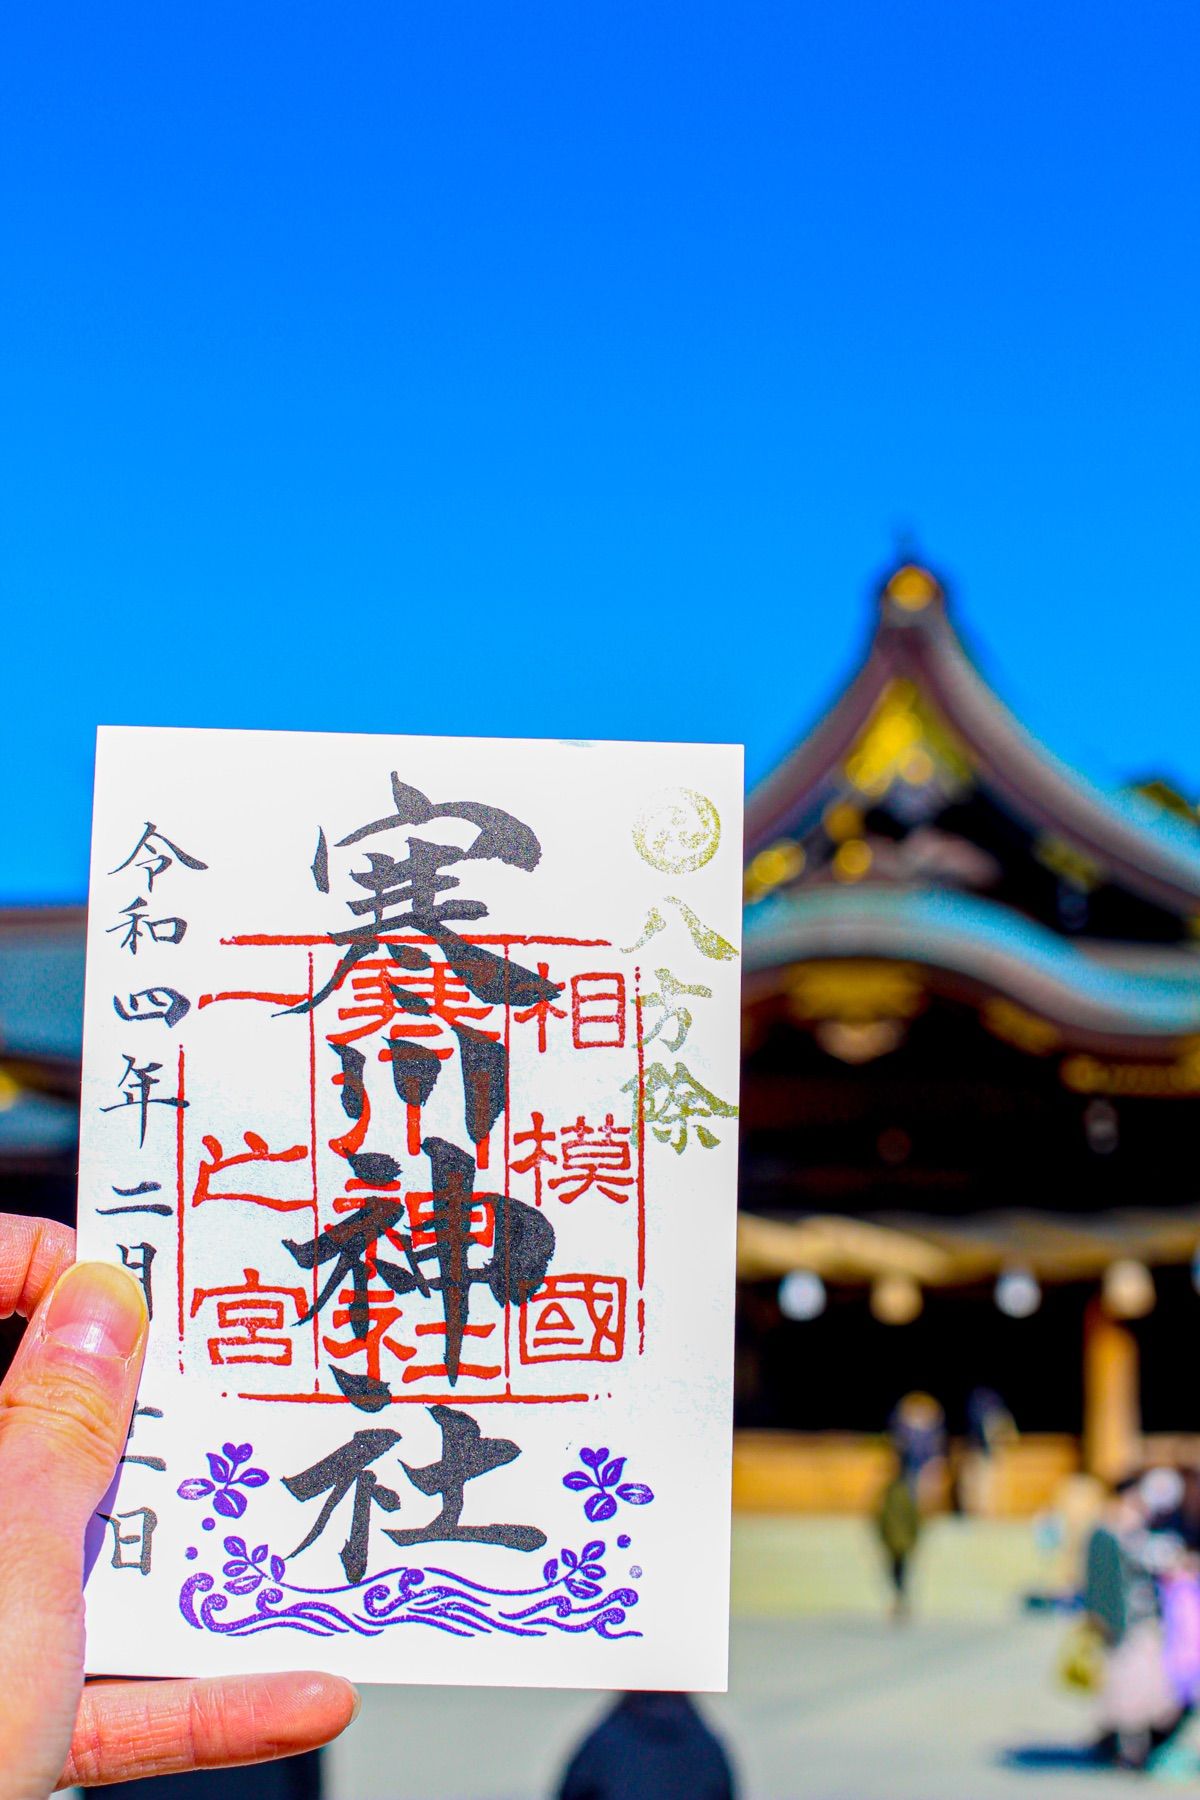 八方除
相模國
寒川神社
一之宮
寒川神社
令和四年二月
日